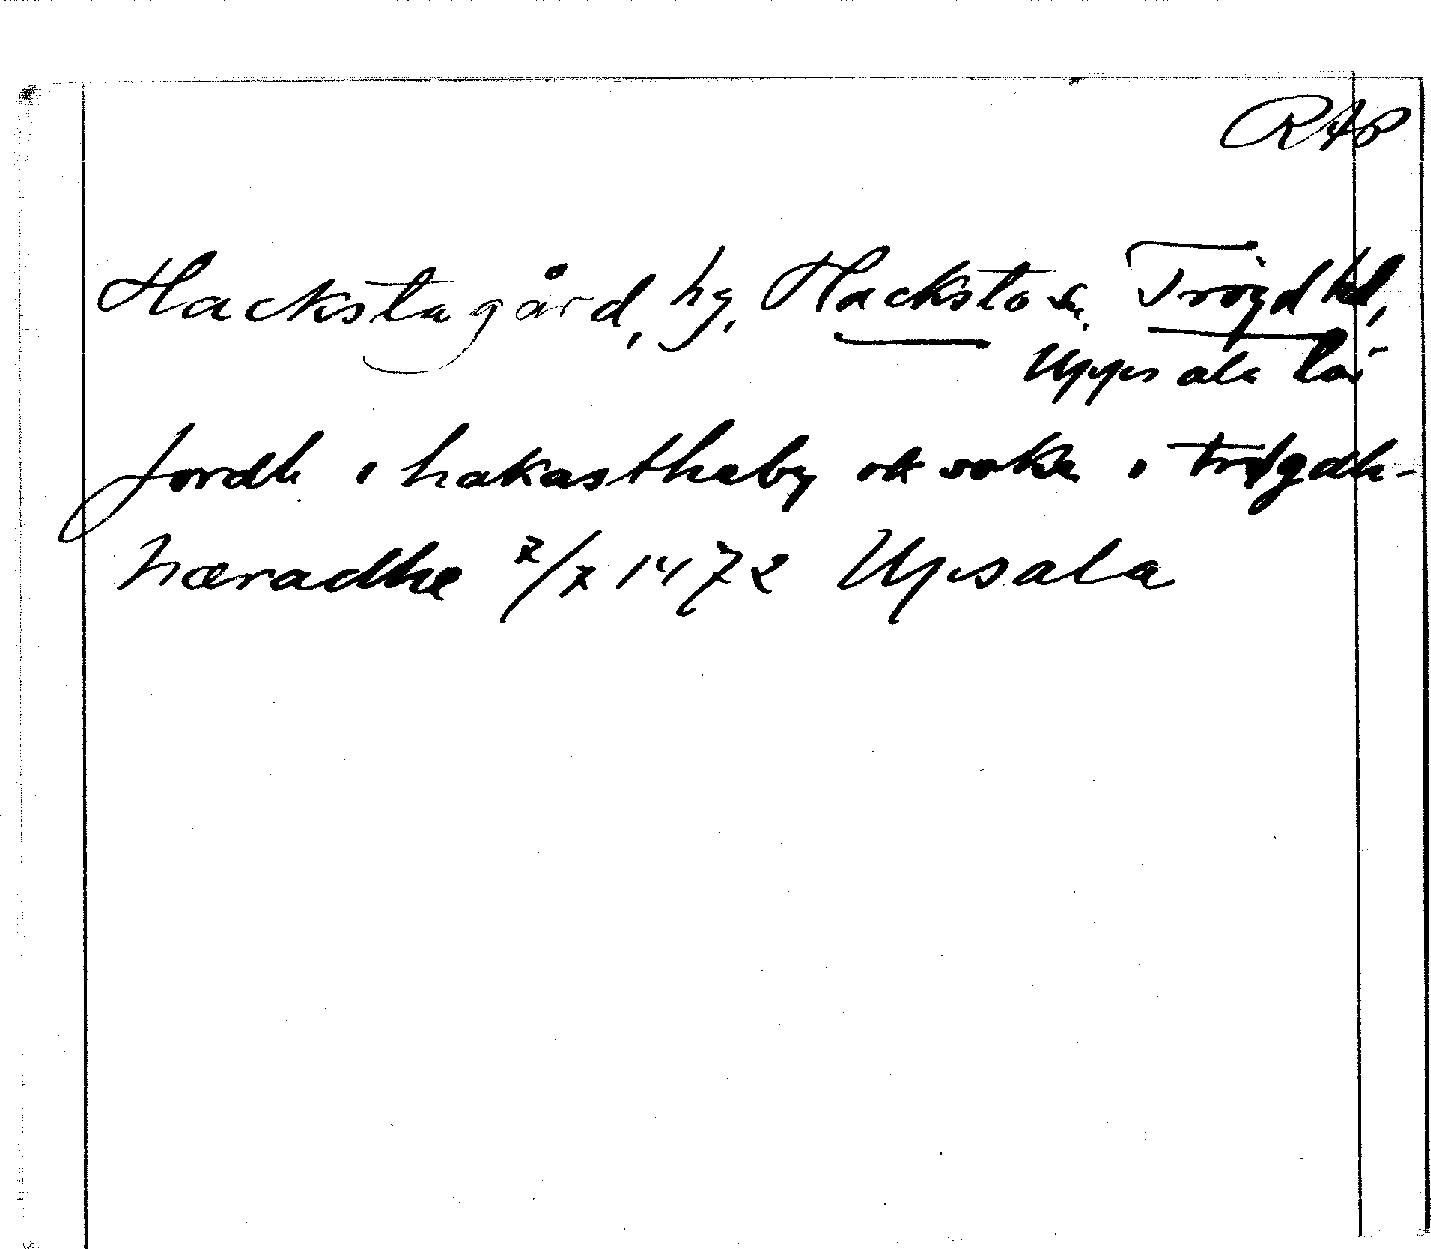 RAP
Hackstagård, hg, Hacksta sn, Trögd hd,
Uppsala län
Jordh i hakastheby ok sokn i trøgdh-
hæradhe 2/7 1472 Upsala